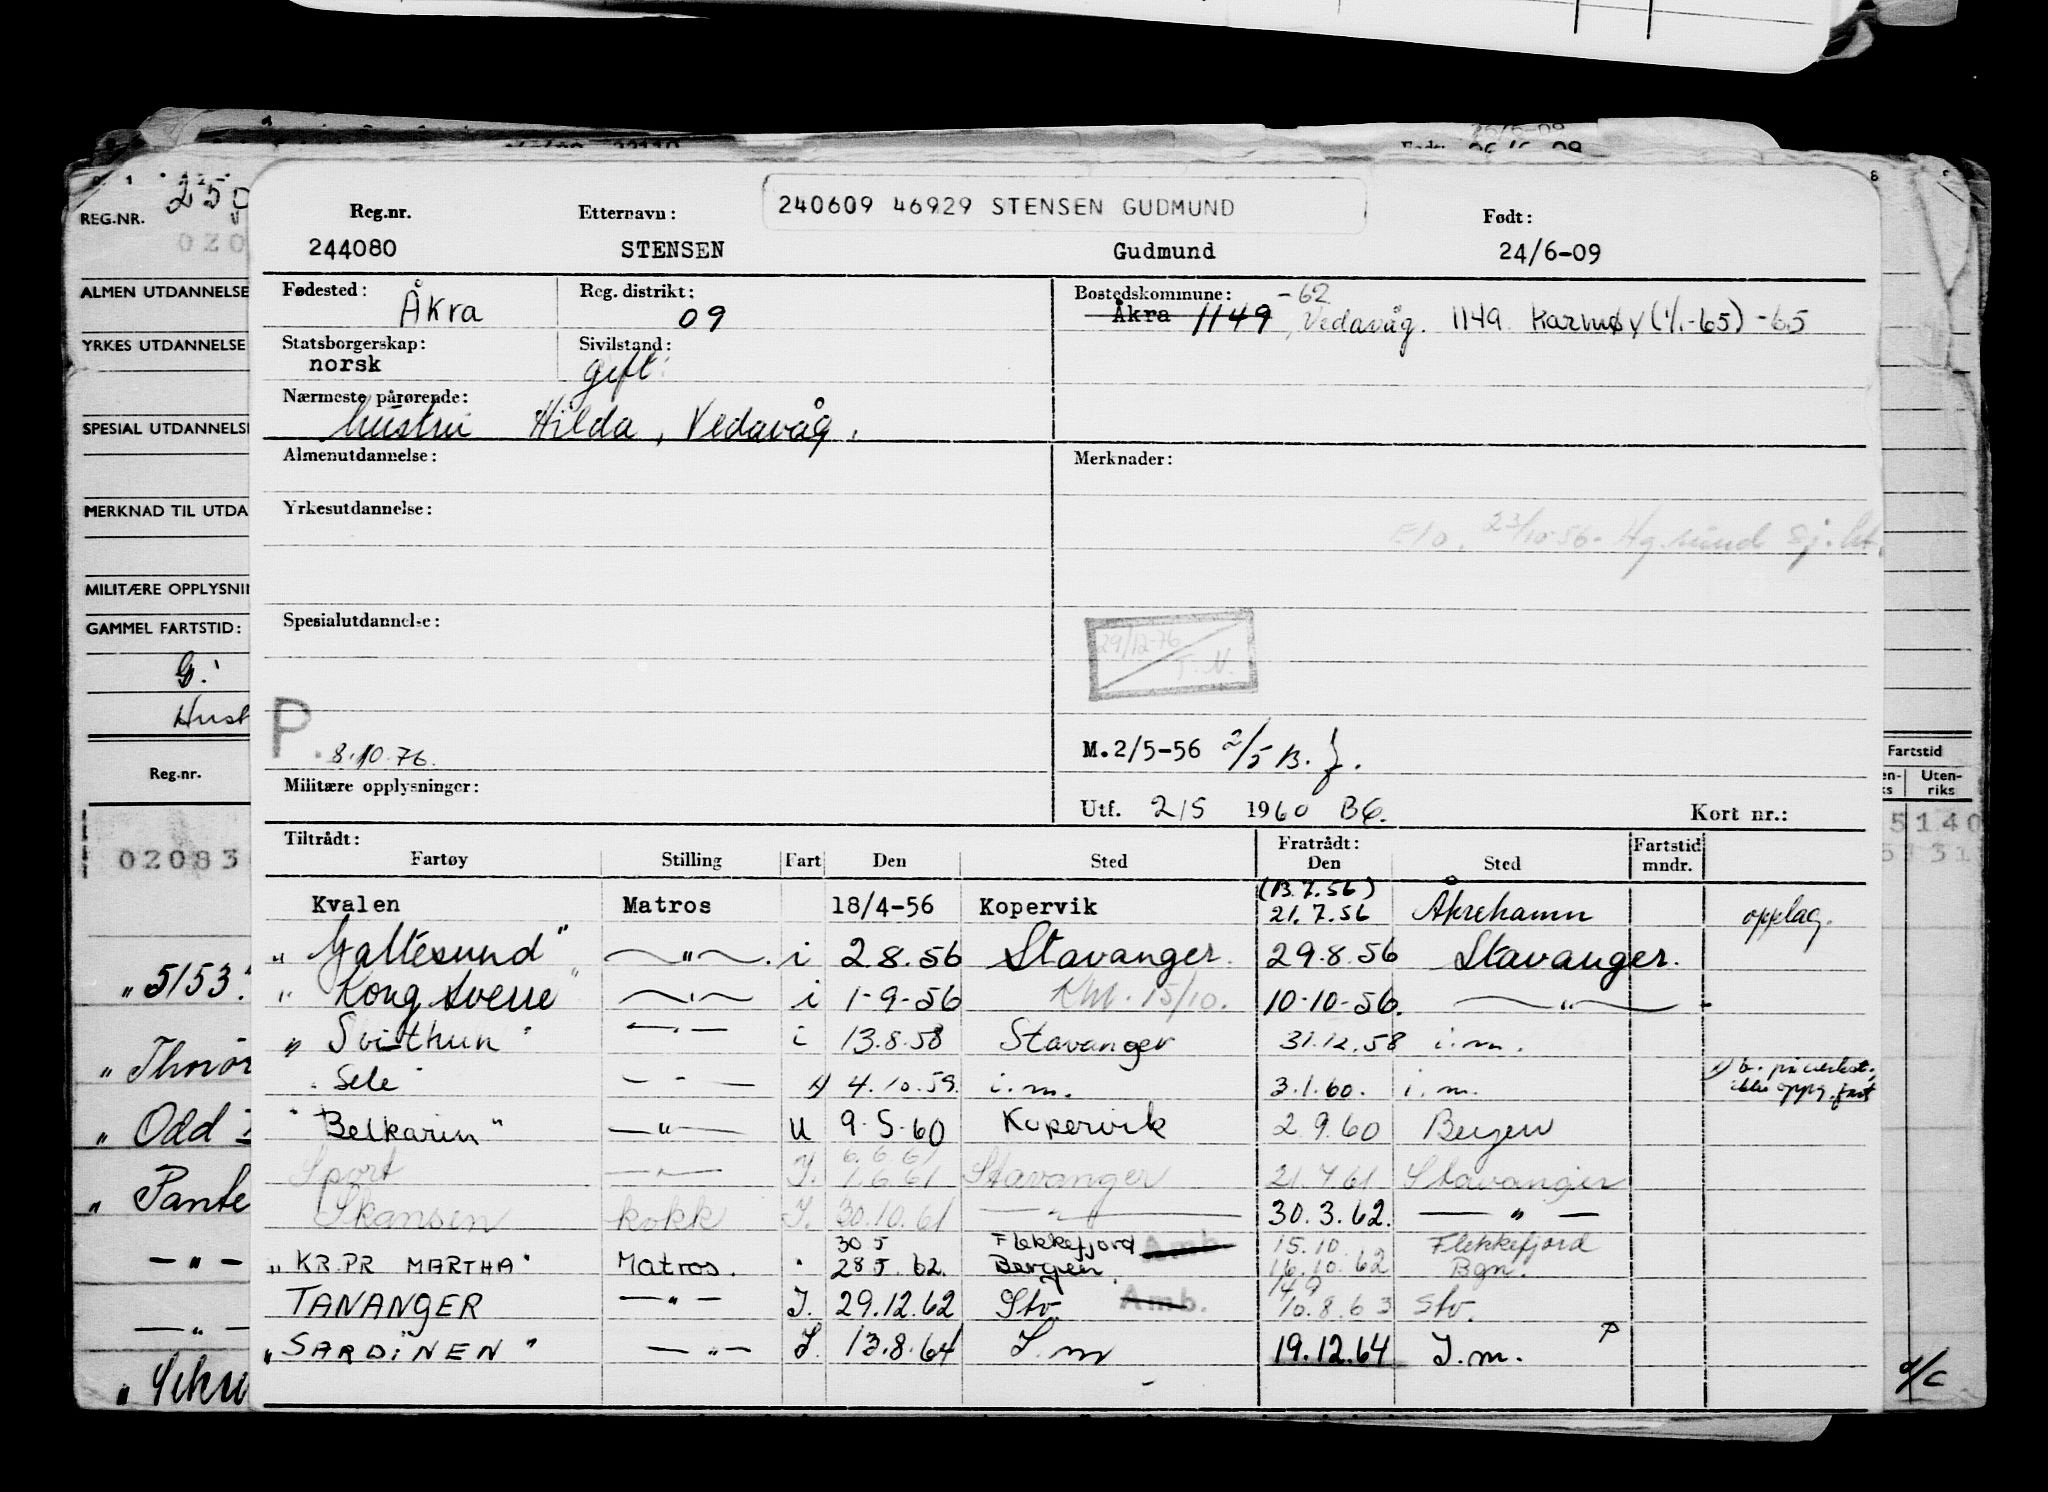 240609 46929 STENSEN GUDMUND
Reg.nr. Etternavn: Født:
244080 STENSEN Gudmund 24/6-09
Fødested: Åkra Reg. distrikt: 09 Bostedskommune: Åkra 1149 -62 Vedavåg. 1149 Karmøy (1/1-65) -65
Statsborgerskap: norsk Sivilstand: gift
Nærmeste pårørende:
hustru Hilda, Vedavåg.
Almenutdannelse: Merknader:
Yrkesutdannelse:
23/10-56 - Hg.sund Sj.
Spesialutdannelse:
29/12-76
T.N.
P. 8.10.76.
M.2/5-56 2/5 B.
Militære opplysninger:
Utf. 2/5 1960 Kort nr.:
Tiltrådt: Fratrådt: Fartstid
Fartøy Stilling Fart Den Sted Den Sted mndr.
Kvalen Matros 18/4-56 Kopervik (13.7.56) 21.7.56 Åkrehamn opplag.
"Galtesund" —"— i 2.8.56 Stavanger. 29.8.56 Stavanger.
"Kong Sverre" —"— i 1-9-56 15/10. 10-10-56. —"—
"Svithun" —"— i 13.8.58 Stavanger 31.12.58 i.m.
"Sele" —"— 4.10.59. i.m. 3.1.60. i.m.
"Belkarin" —"— u 9.5.60 Kopervik 2.9.60 Bergen
Sport —"— I. 6.6.61 1.6.61 Stavanger 21.7.61 Stavanger
Skansen kokk I. 30.10.61 —"— 30.3.62. —"—
"KR.PR MARTHA" Matros. " 30 5 28 5. 62. Flekkefjord Bergen Amb. 15.10 16.10.62 Flekkefjord Bgn.
TANANGER —"— I. 29.12.62 Stv. Amb. 14 9 10.8.63 Stv.
"SARDINEN" —"— I. 13.8.64 I.m 19.12.64 I.m. P
REG.NR.
ALMEN UTDANNELSE
YRKES UTDANNELSE
SPECIAL UTDANNELS
MERKNAD TIL UTDA
MILITÆRE OPPLYSNIN
GAMMEL FARTSTID:
G.
Hust
Reg.nr.
02083
"5153"
"Odd
"Pante
—"—
—"—
Fartstid
Uten-
riks
5140